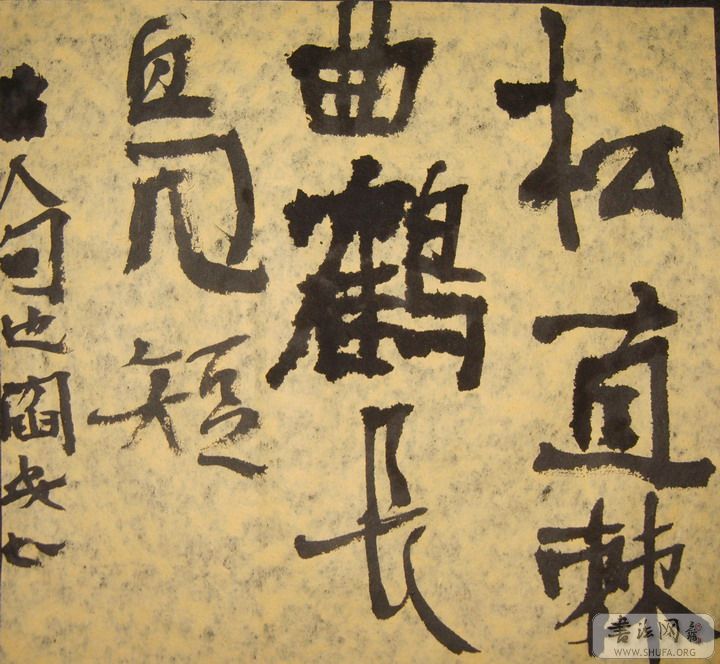 松直棘
曲鹤长
凫短
古人句也阎安
书法网
WWW.SHUFA.ORG